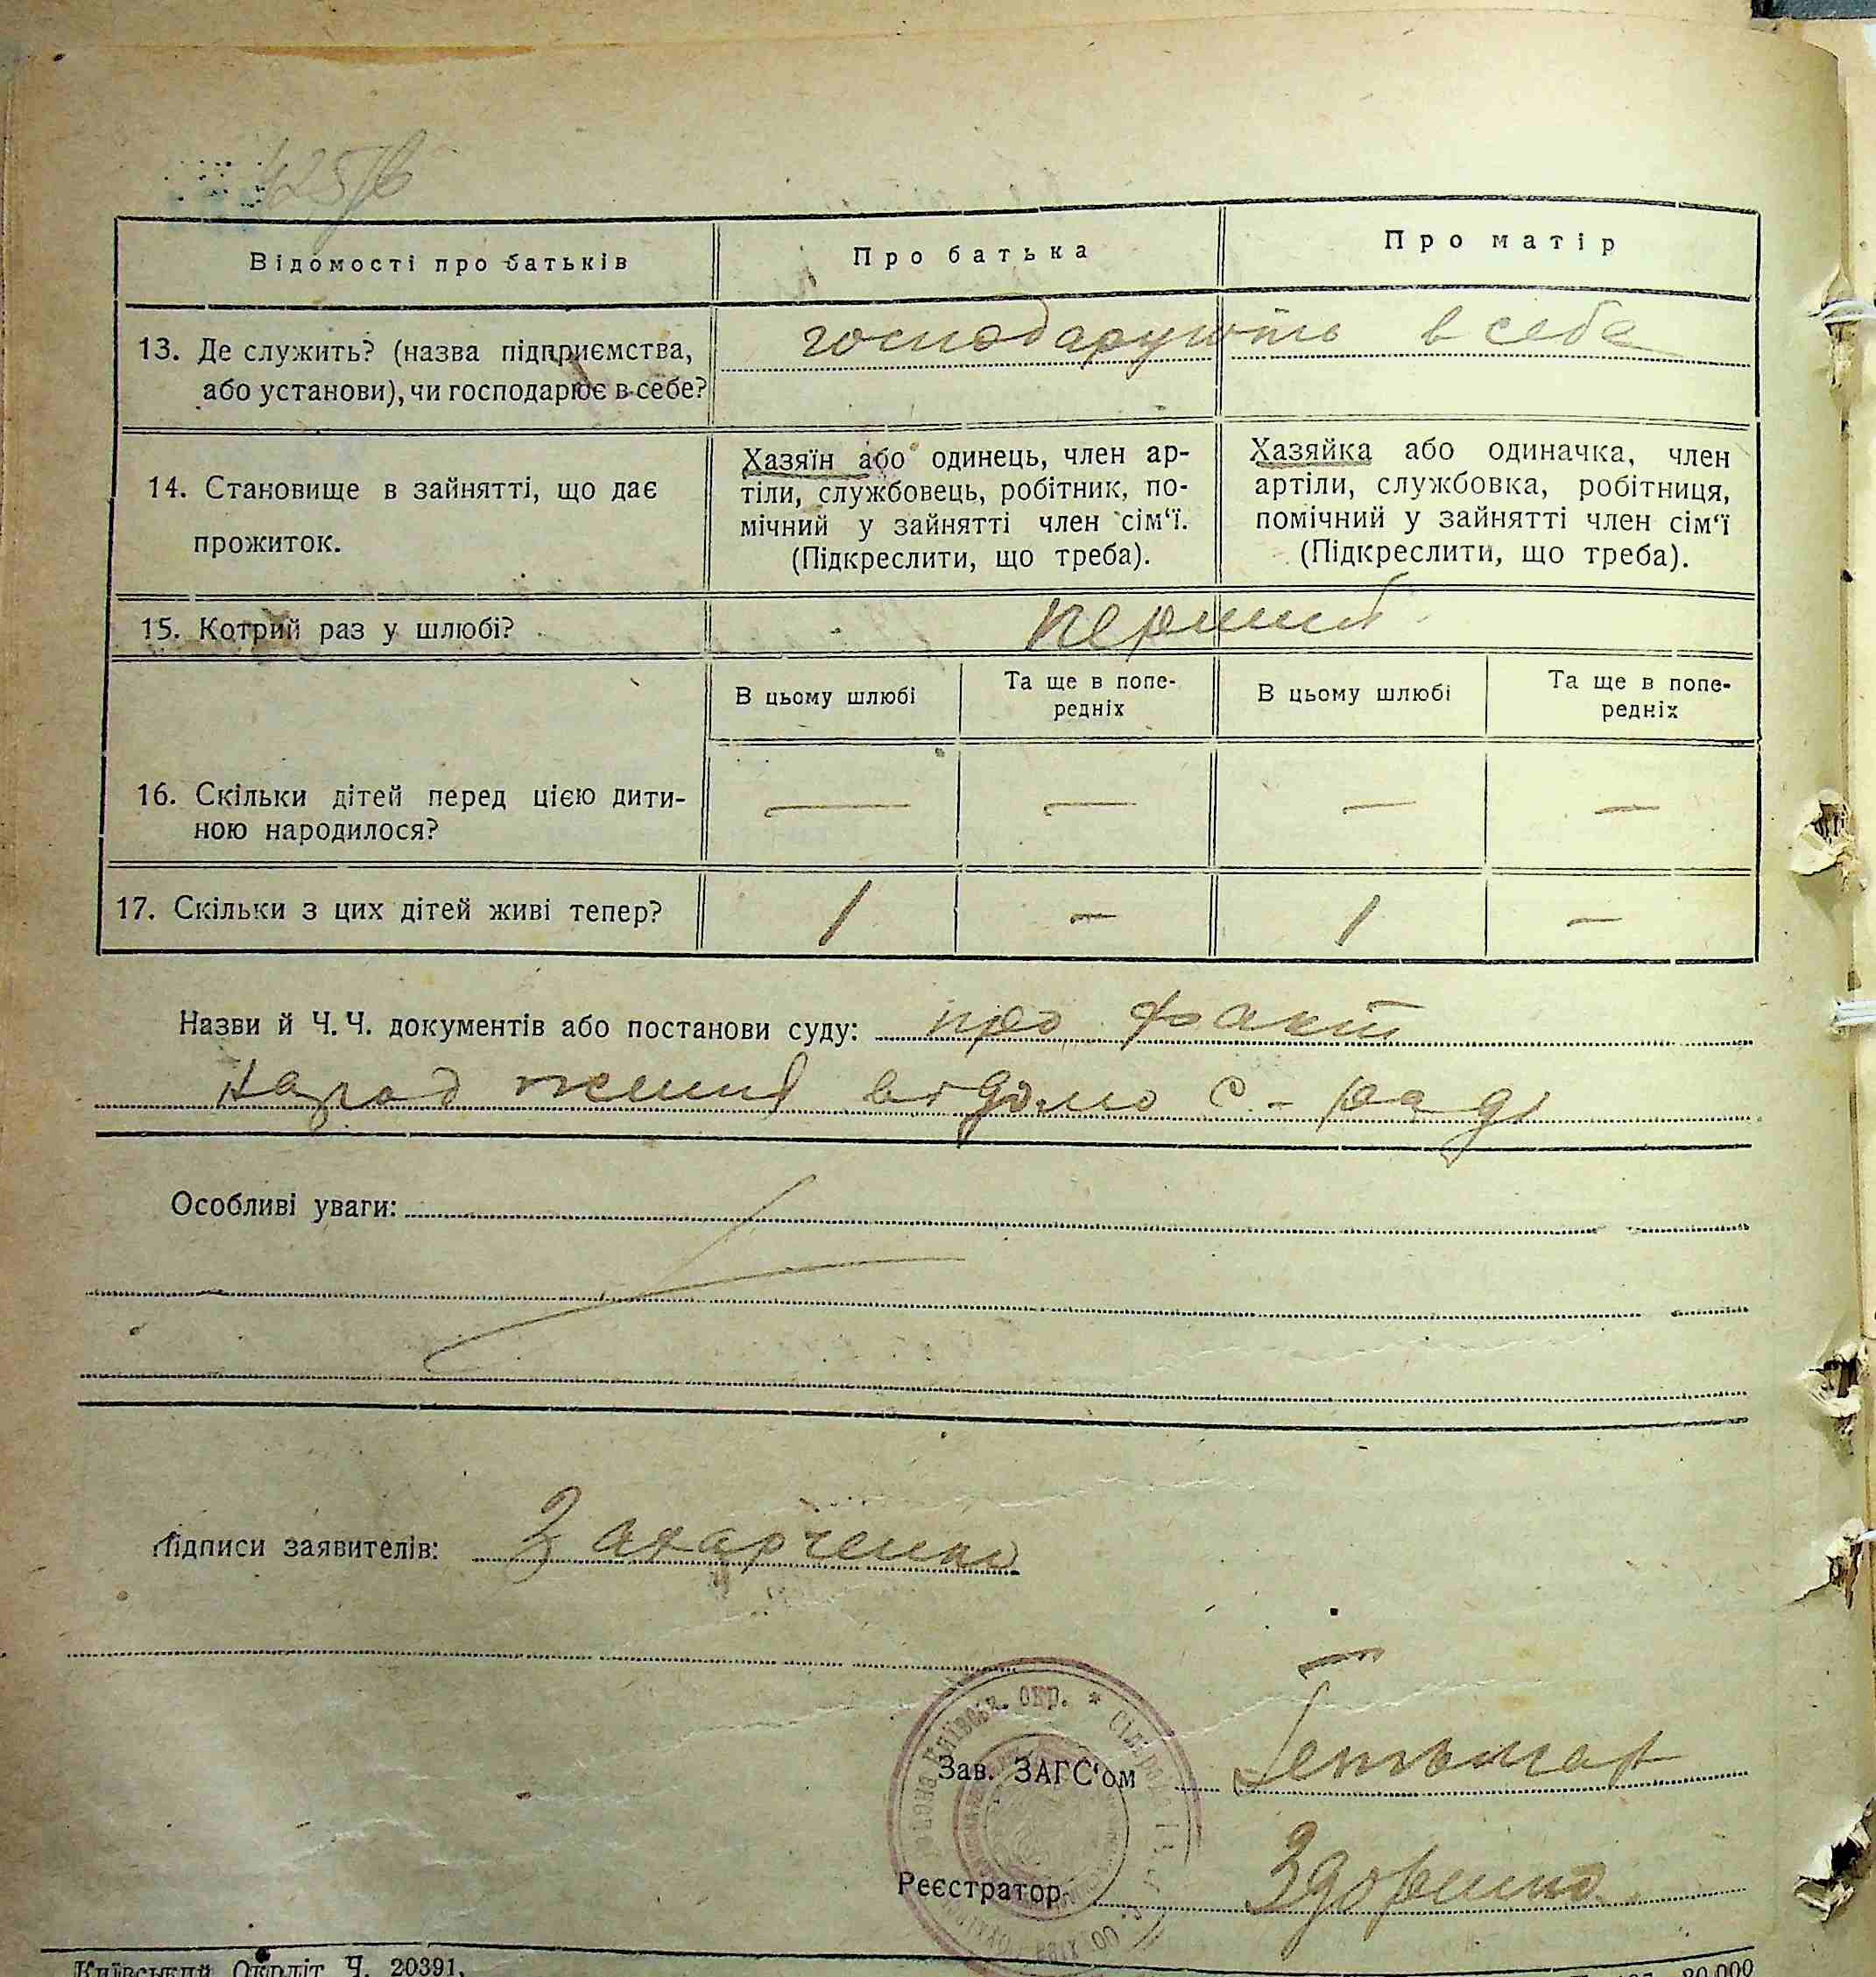 425/6
Відомості про батьків
Про батька
Про матір
13. Де служить? (назва підприємства,
або установи), чи господарює в себе?
господарують в себе
14. Становище в зайнятті, що дає
прожиток.
Хазяїн або одинець, член ар-
тіли, службовець, робітник, по-
мічний у зайнятті член сім‘ї.
(Підкреслити, що треба).
Хазяйка або одиначка, член
артіли, службовка, робітниця,
помічний у зайнятті член сім‘ї
(Підкреслити, що треба).
15. Котрий раз у шлюбі?
перший
В цьому шлюбі
Та ще в попе-
редніх
В цьому шлюбі
Та ще в попе-
редніх
16. Скільки дітей перед цією дити-
ною народилося?
— — — —
17. Скільки з цих дітей живі тепер?
1 — 1 —
Назви й Ч. Ч. документів або постанови суду: про факт
народження відомо с-раді
Особливі уваги:
Підписи заявителів: Захарченко
Київськ. окр. * Сільрада
Зав. ЗАГС‘ом Гетьман
Реєстратор
Київський Окрліт Ч. 20391.
20.000